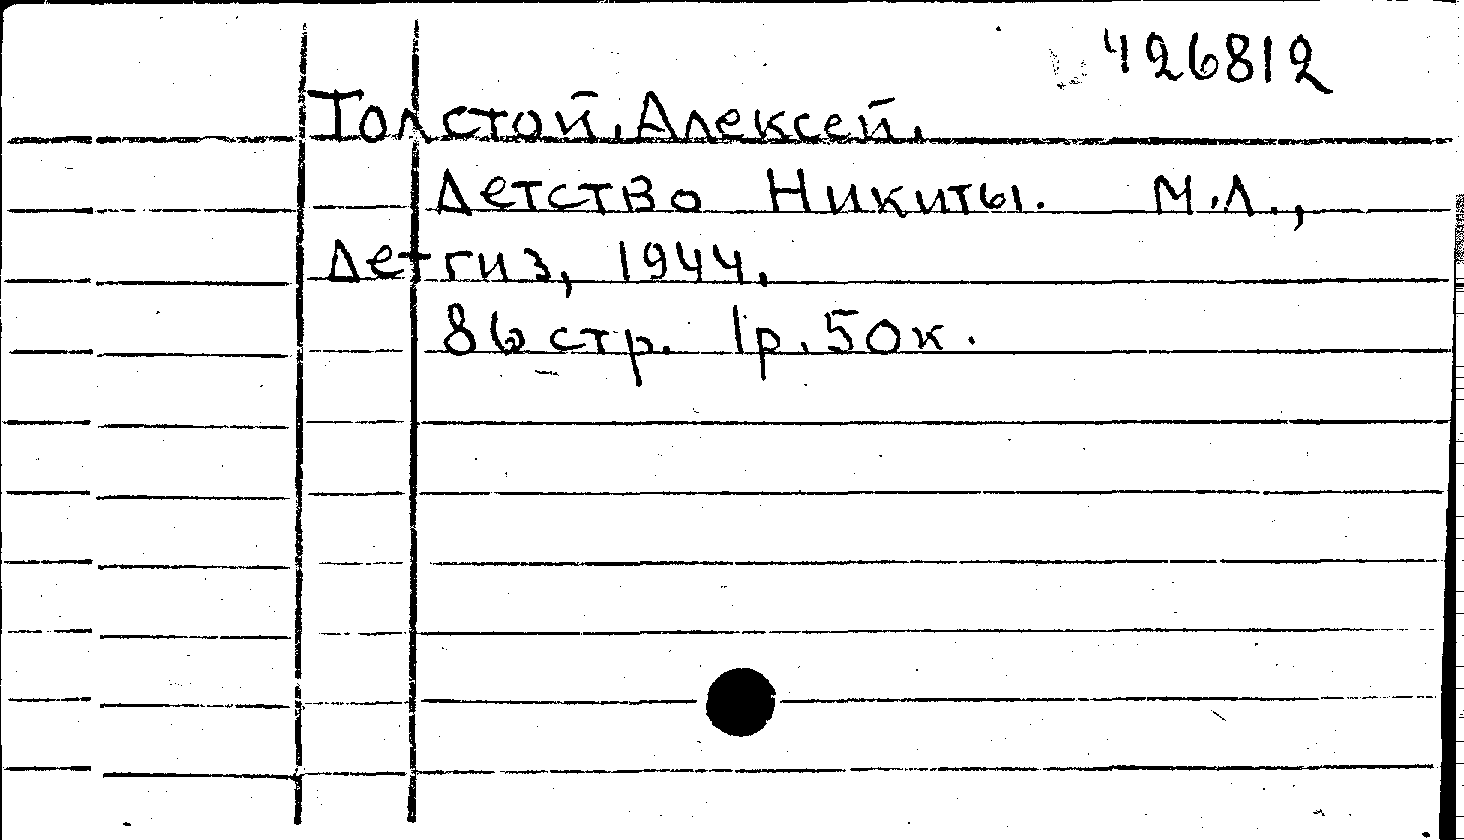 426812
Толстой, Алексей.
Детство Никиты. М.Л.,
Детгиз, 1944.
86 стр. 1р.50к.